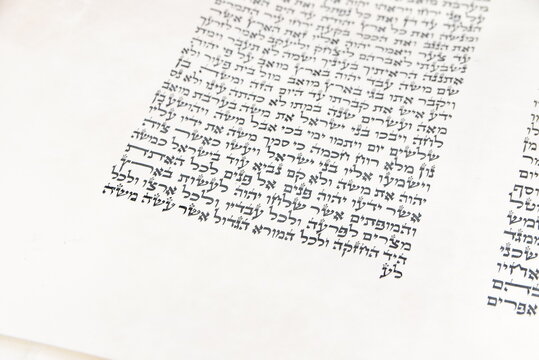 על פני ירחו ויראהו יהוה את כל
עד דן ואת כל נפתלי ואת ארץ אפרים
ומנשה ואת כל ארץ יהודה עד הים האחרון
ואת הנגב ואת הככר בקעת ירחו עיר התמרים
עד צער ויאמר יהוה אליו זאת הארץ אשר
נשבעתי לאברהם ליצחק וליעקב לאמר לזרעך
אתננה הראיתיך בעיניך ושמה לא תעבר וימת
שם משה עבד יהוה בארץ מואב על פי יהוה
ויקבר אתו בגי בארץ מואב מול בית פעור ולא
ידע איש את קברתו עד היום הזה ומשה בן
מאה ועשרים שנה במתו לא כהתה עינו ולא נס
לחה ויבכו בני ישראל את משה בערבת מואב
שלשים יום ויתמו ימי בכי אבל משה ויהושע בן
נון מלא רוח חכמה כי סמך משה את ידיו עליו
וישמעו אליו בני ישראל ויעשו כאשר צוה
יהוה את משה ולא קם נביא עוד בישראל כמשה
אשר ידעו יהוה פנים אל פנים לכל האתת
והמופתים אשר שלחו יהוה לעשות בארץ
מצרים לפרעה ולכל עבדיו ולכל ארצו ולכל
היד החזקה ולכל המורא הגדול אשר עשה משה
לע
יום
ומגד
שכני
בהם
אפרים